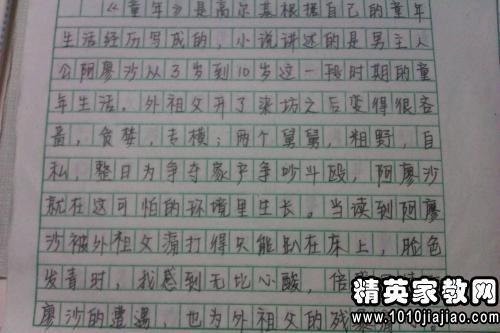 《童年》是高尔基根据自己的童年
生活经历写成的,小说讲述的是男主人
公阿廖沙从3岁到10岁这一段时期的童
年生活。外祖父开了染坊之后变得很吝
啬,贪婪,专横;两个舅舅,粗野,自
私,整日为争夺家产争吵斗殴,阿廖沙
就在这可怕的环境里生长。当读到阿廖
沙被外祖父痛打得只能趴在床上,脸色
发青时,我感到无比心酸,倍
廖沙的遭遇,也为外祖父的残
精英家教网
www.1010jiajiao.com